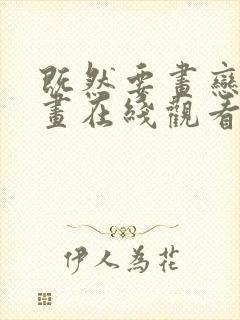 既然要畫戀
畫在綫觀看
伊人為花